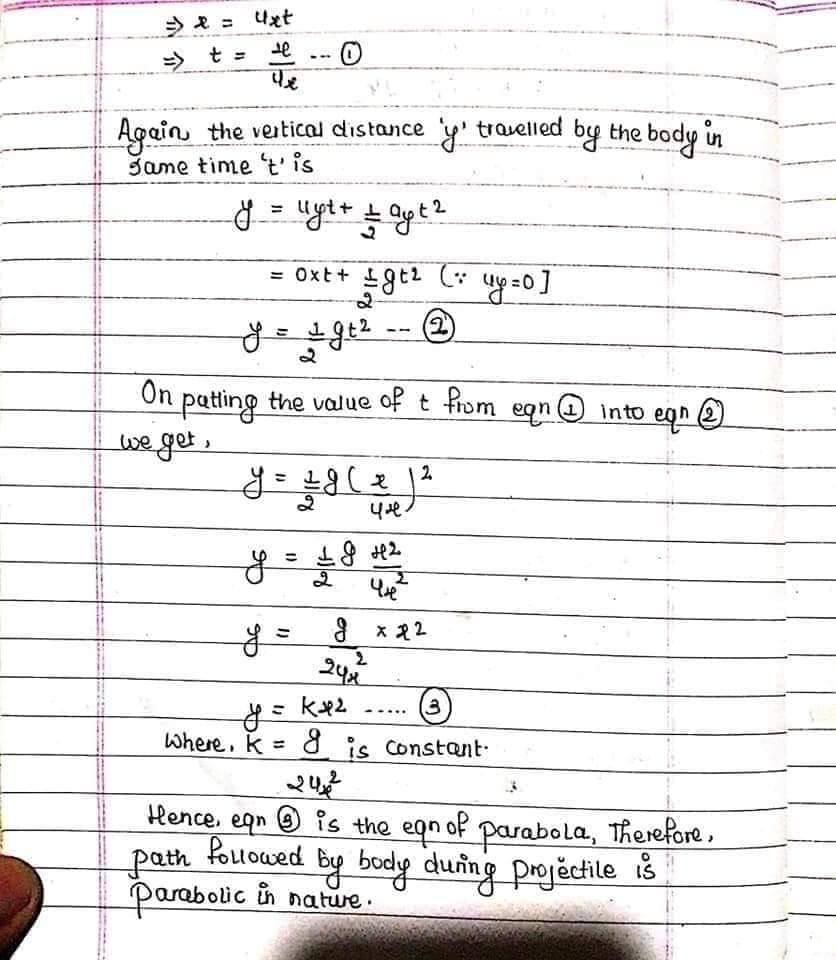 ⇒ x = uxt
⇒ t = x/ux --- ①
Again, the vertical distance 'y' travelled by the body in
same time 't' is
y = uyt + 1/2 ayt2
= 0xt + 1/2 gt2 (∵ uy=0]
y = 1/2 gt2 -- ②
On putting the value of t from eqn ① into eqn ②
we get,
y = 1/2 g (x/ux)2
y = 1/2 g x2/ux2
y = g/2ux2 × x2
y = kx2 ..... ③
Where, k = g/2ux2 is constant.
Hence, eqn ③ is the eqn of parabola, Therefore,
path followed by body during projectile is
parabolic in nature.